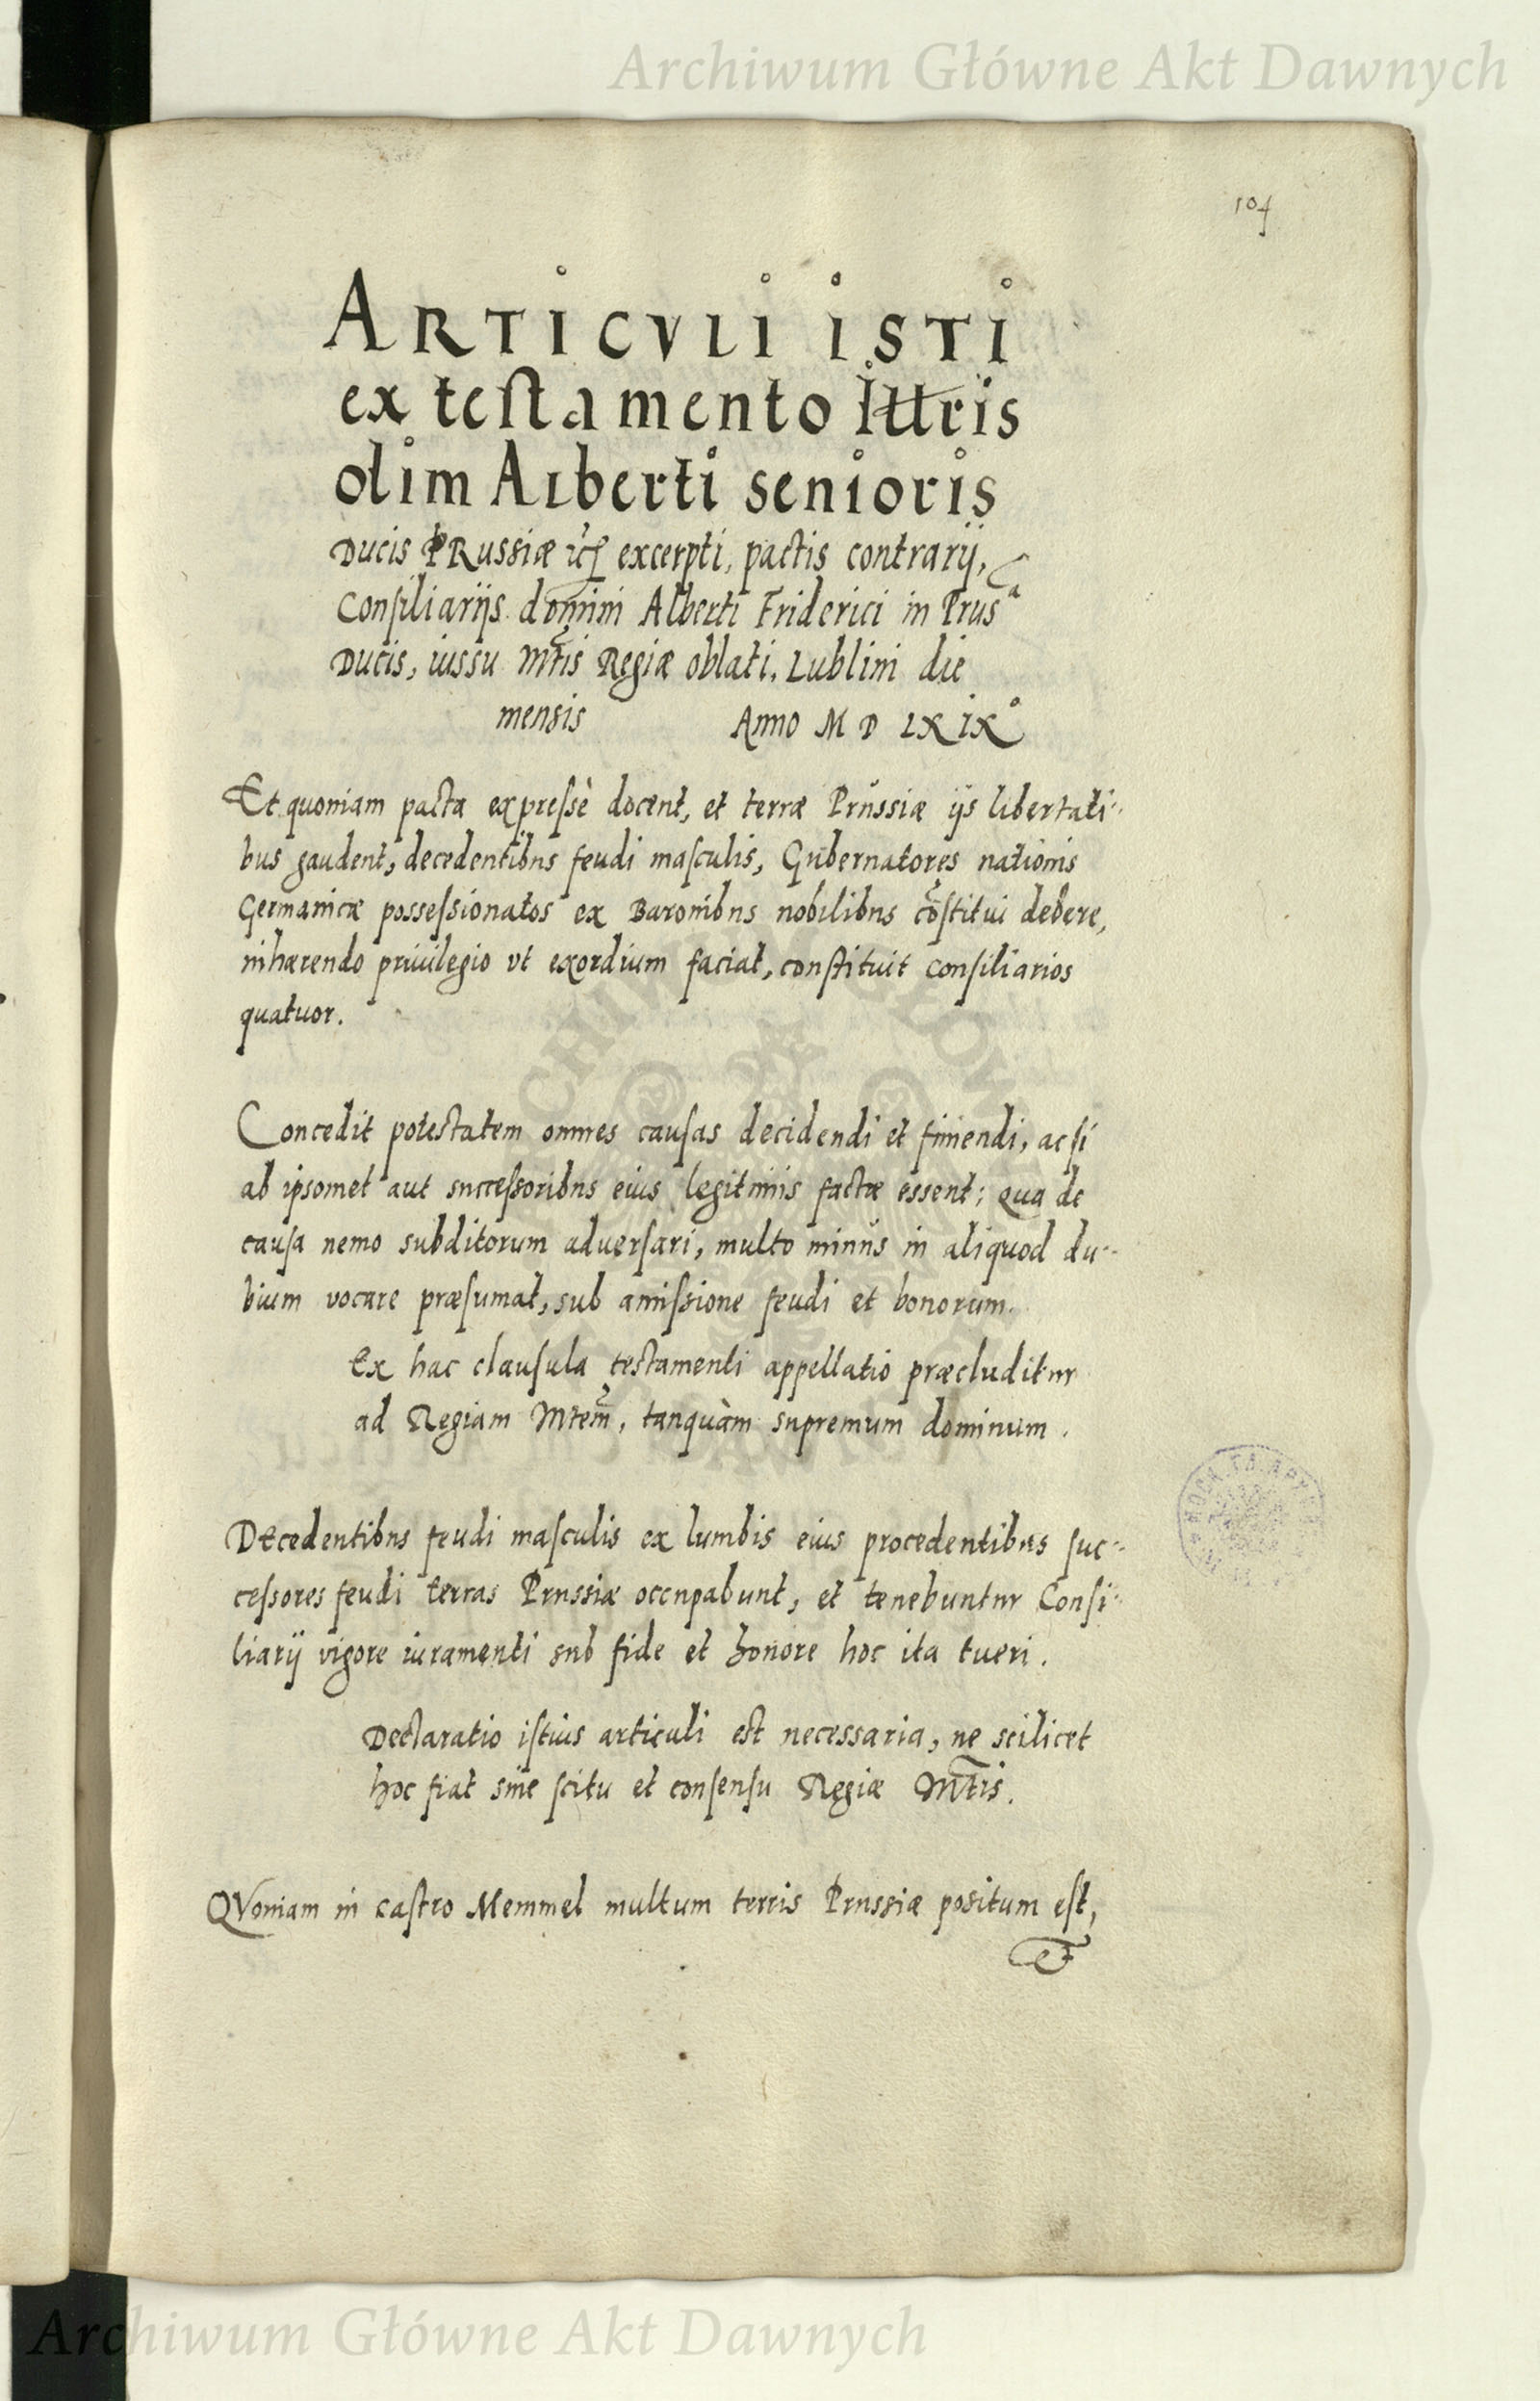 Archiwum Główne Akt Dawnych
104
ARTICVLI ISTI
ex testamento Illtris
olim Alberti senioris
Ducis PRussiæ etc excerpti, pactis contrarij,
Consiliarijs domini Alberti Friderici in Prusa
Ducis, iussu Mtis Regiæ oblati. Lublini die
mensis Anno M D LXIXo
Et quoniam pacta expressè docent, et terræ Prussiæ ijs libertati-
bus gaudent, decedentibus feudi masculis, Gubernatores nationis
Germanicæ possessionatos ex Baronibus nobilibus cōstitui debere,
inhærendo priuilegio vt exordium faciat, constituit Consiliarios
quatuor.
Concedit potestatem omnes causas decidendi et finiendi, ac si
ab ipsomet aut successoribus eius legitimis factæ essent; Qua de
causa nemo subditorum aduersari, multo minùs in aliquod du-
bium vocare præsumat, sub amissione feudi et bonorum.
Ex hac clausula testamenti appellatio præcluditur
ad Regiam Mtem, tanquàm supremum dominum.
Decedentibus feudi masculis ex lumbis eius procedentibus suc-
cessores feudi terras Prussiæ occupabunt, et tenebuntur Consi-
liarij vigore iuramenti sub fide et honore hoc ita tueri.
Declaratio istius articuli est necessaria, ne scilicet
hoc fiat sine scitu et consensu Regiæ Mtis.
QVoniam in castro Memmel multum terris Prussiæ positum est,
et
Archiwum Główne Akt Dawnych